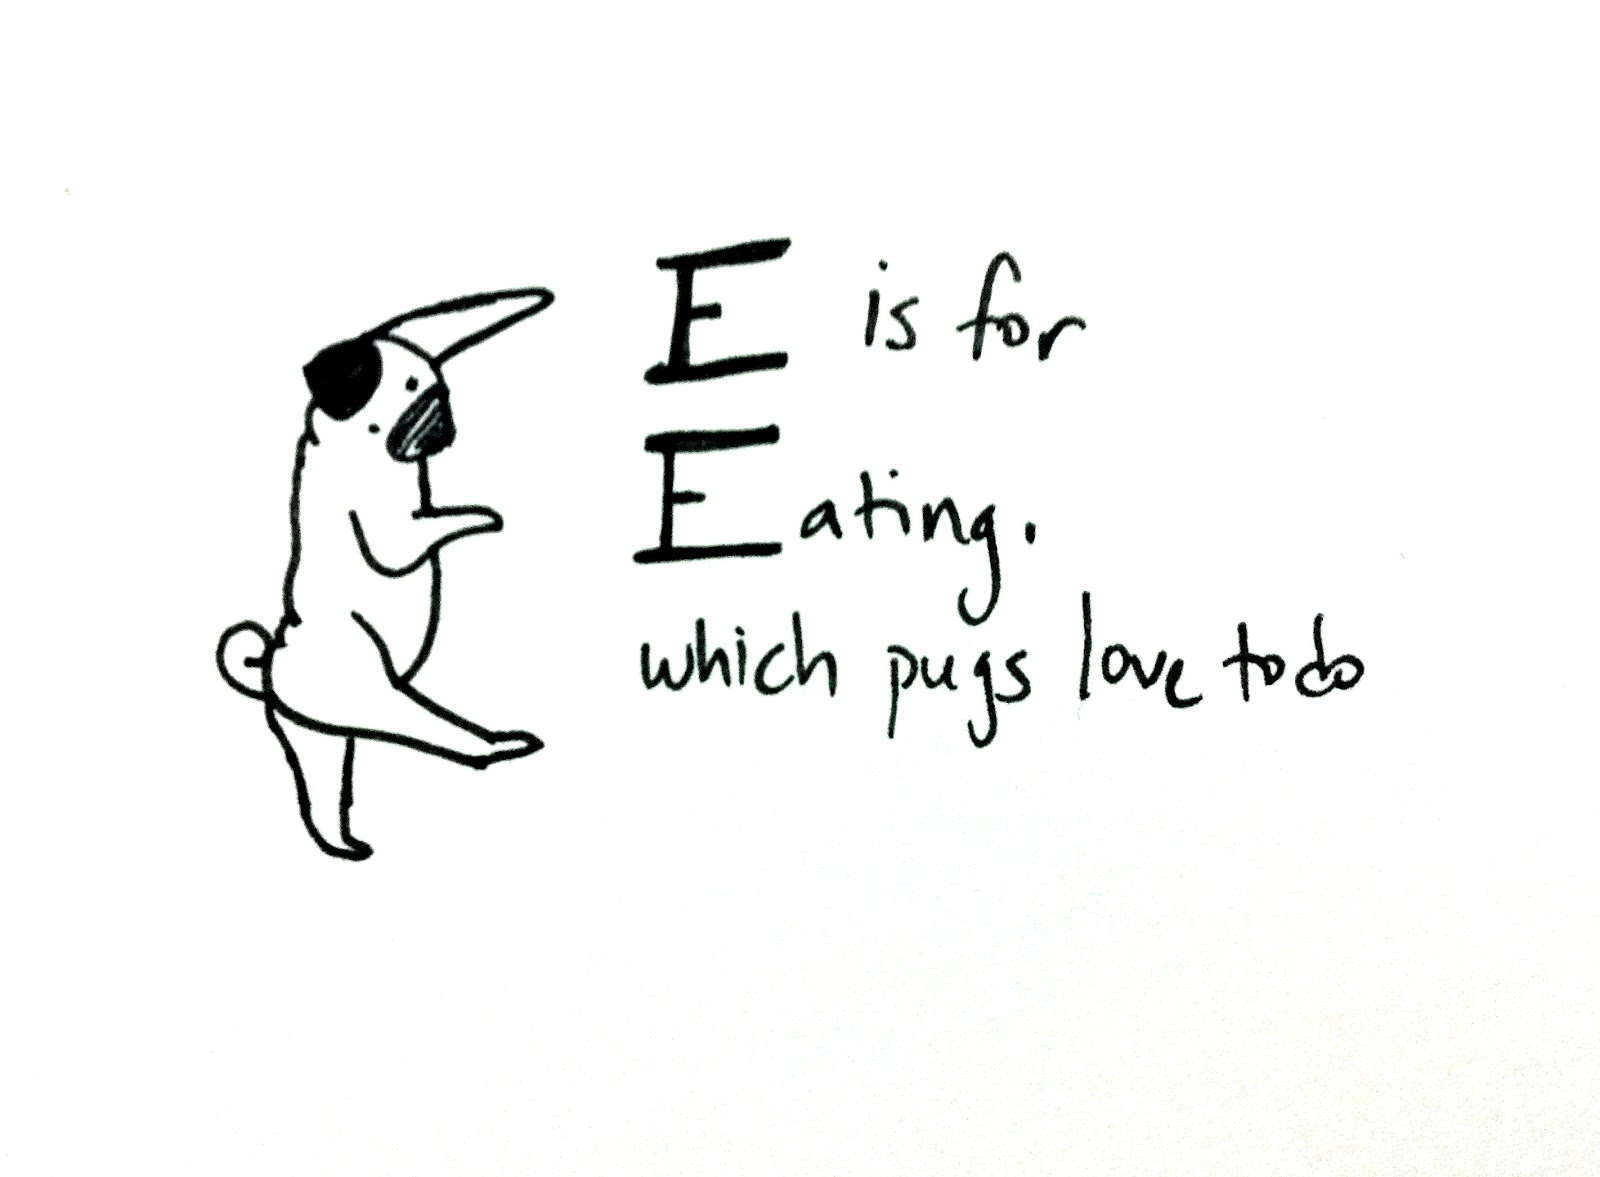 E is for
Eating.
which pugs love to do